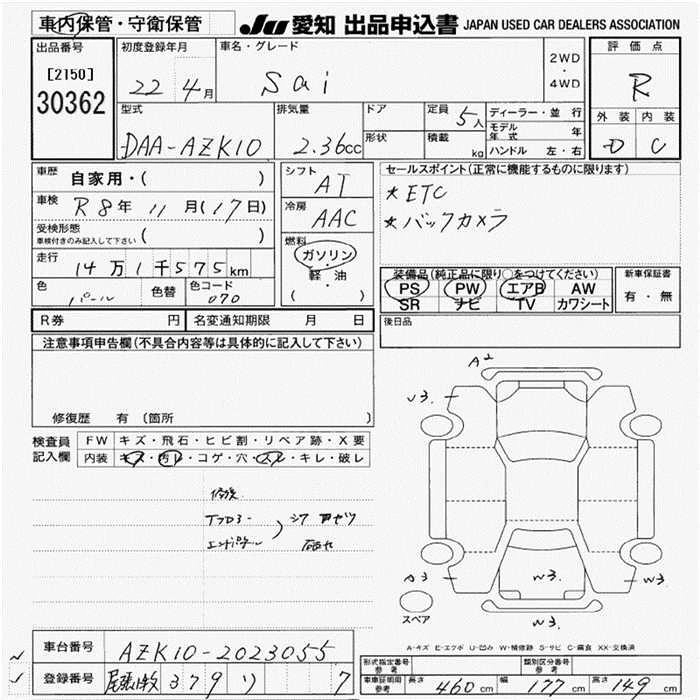 車内保管・守衛保管
JU 愛知 出品申込書 JAPAN USED CAR DEALERS ASSOCIATION
出品番号
[2150]
30362
初度登録年月
22 4月
車名・グレード
Sai
2WD
・
4WD
評価点
R
外装 内装
D C
型式
DAA-AZK10
排気量
2.36cc
ドア
形状
定員 5人
積載 kg
ディーラー・並行
モデル年式 年
ハンドル 左・右
車歴 自家用・( )
車検 R8年 11月(17日)
受検形態 ( )
車検付きのみ記入して下さい
走行 14万1千575km
色 パール 色替 色コード 070
シフト AT
冷房 AAC
燃料
ガソリン
・
軽油
( )
セールスポイント(正常に機能するものに限ります)
★ETC
★バックカメラ
装備品(純正品に限り○をつけてください)
PS PW エアB AW
SR ナビ TV カワシート
新車保証書
有・無
R券 円 名変通知期限 月 日
後日品
注意事項申告欄(不具合内容等は具体的に記入して下さい)
修復歴 有 (箇所 )
検査員記入欄
FW キズ・飛石・ヒビ割・リペア跡・X要
内装 キズ・汚レ・コゲ・穴・スレ・キレ・破レ
修復
A2
U3.
A3
W3.
W3.
W3.
スペア
A-キズ E-エクボ U-凹み W-補修跡 S-サビ C-腐食 XX-交換済
車台番号 AZK10-2023055
登録番号 尾張小牧 379 ソ 7
形式指定番号 参考
類別区分番号 参考
車車証明用 参考 長さ 460cm 幅 177cm 高さ 149cm